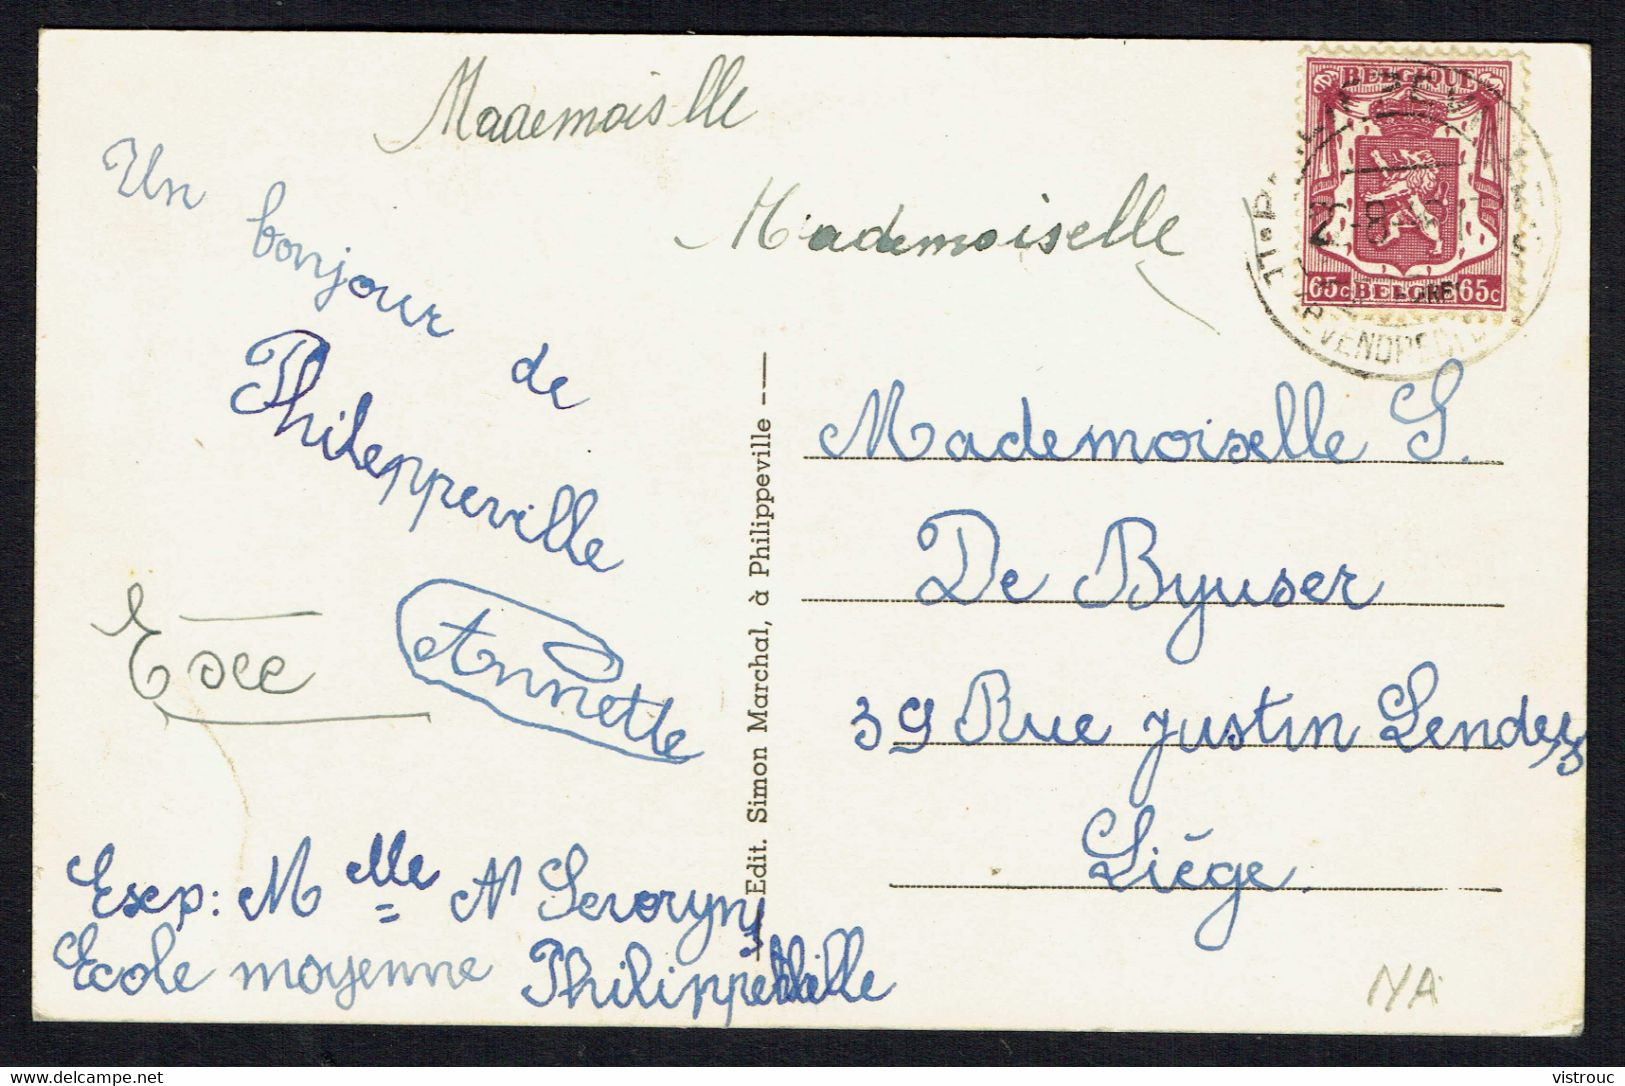 Mademoislle
Mademoiselle
Un bonjour de
Philippeville
Annette
Exp: Mlle A
Ecole moyenne Philippeville
Edit. Simon Marchal, à Philippeville
BELGIQUE
65c BELGIE 65c
VENDREDI
Mademoiselle S.
De Byuser
39 Rue Justin Lenders
Liége.
NA
delcampe.net
vistrouc